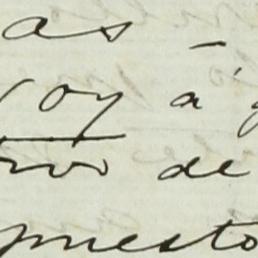 as
voy á
rvo de
puesto